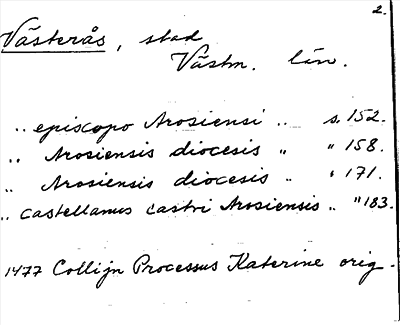 2.
Västerås, stad
Västm. län.
„ episcopo Arosiensi „ s. 152.
„ Arosiensis diocesis „ " 158.
„ Arosiensis diocesis „ " 171.
„ castellanus castri Arosiensis „ " 183.
1477 Collijn Processus Katerine orig.